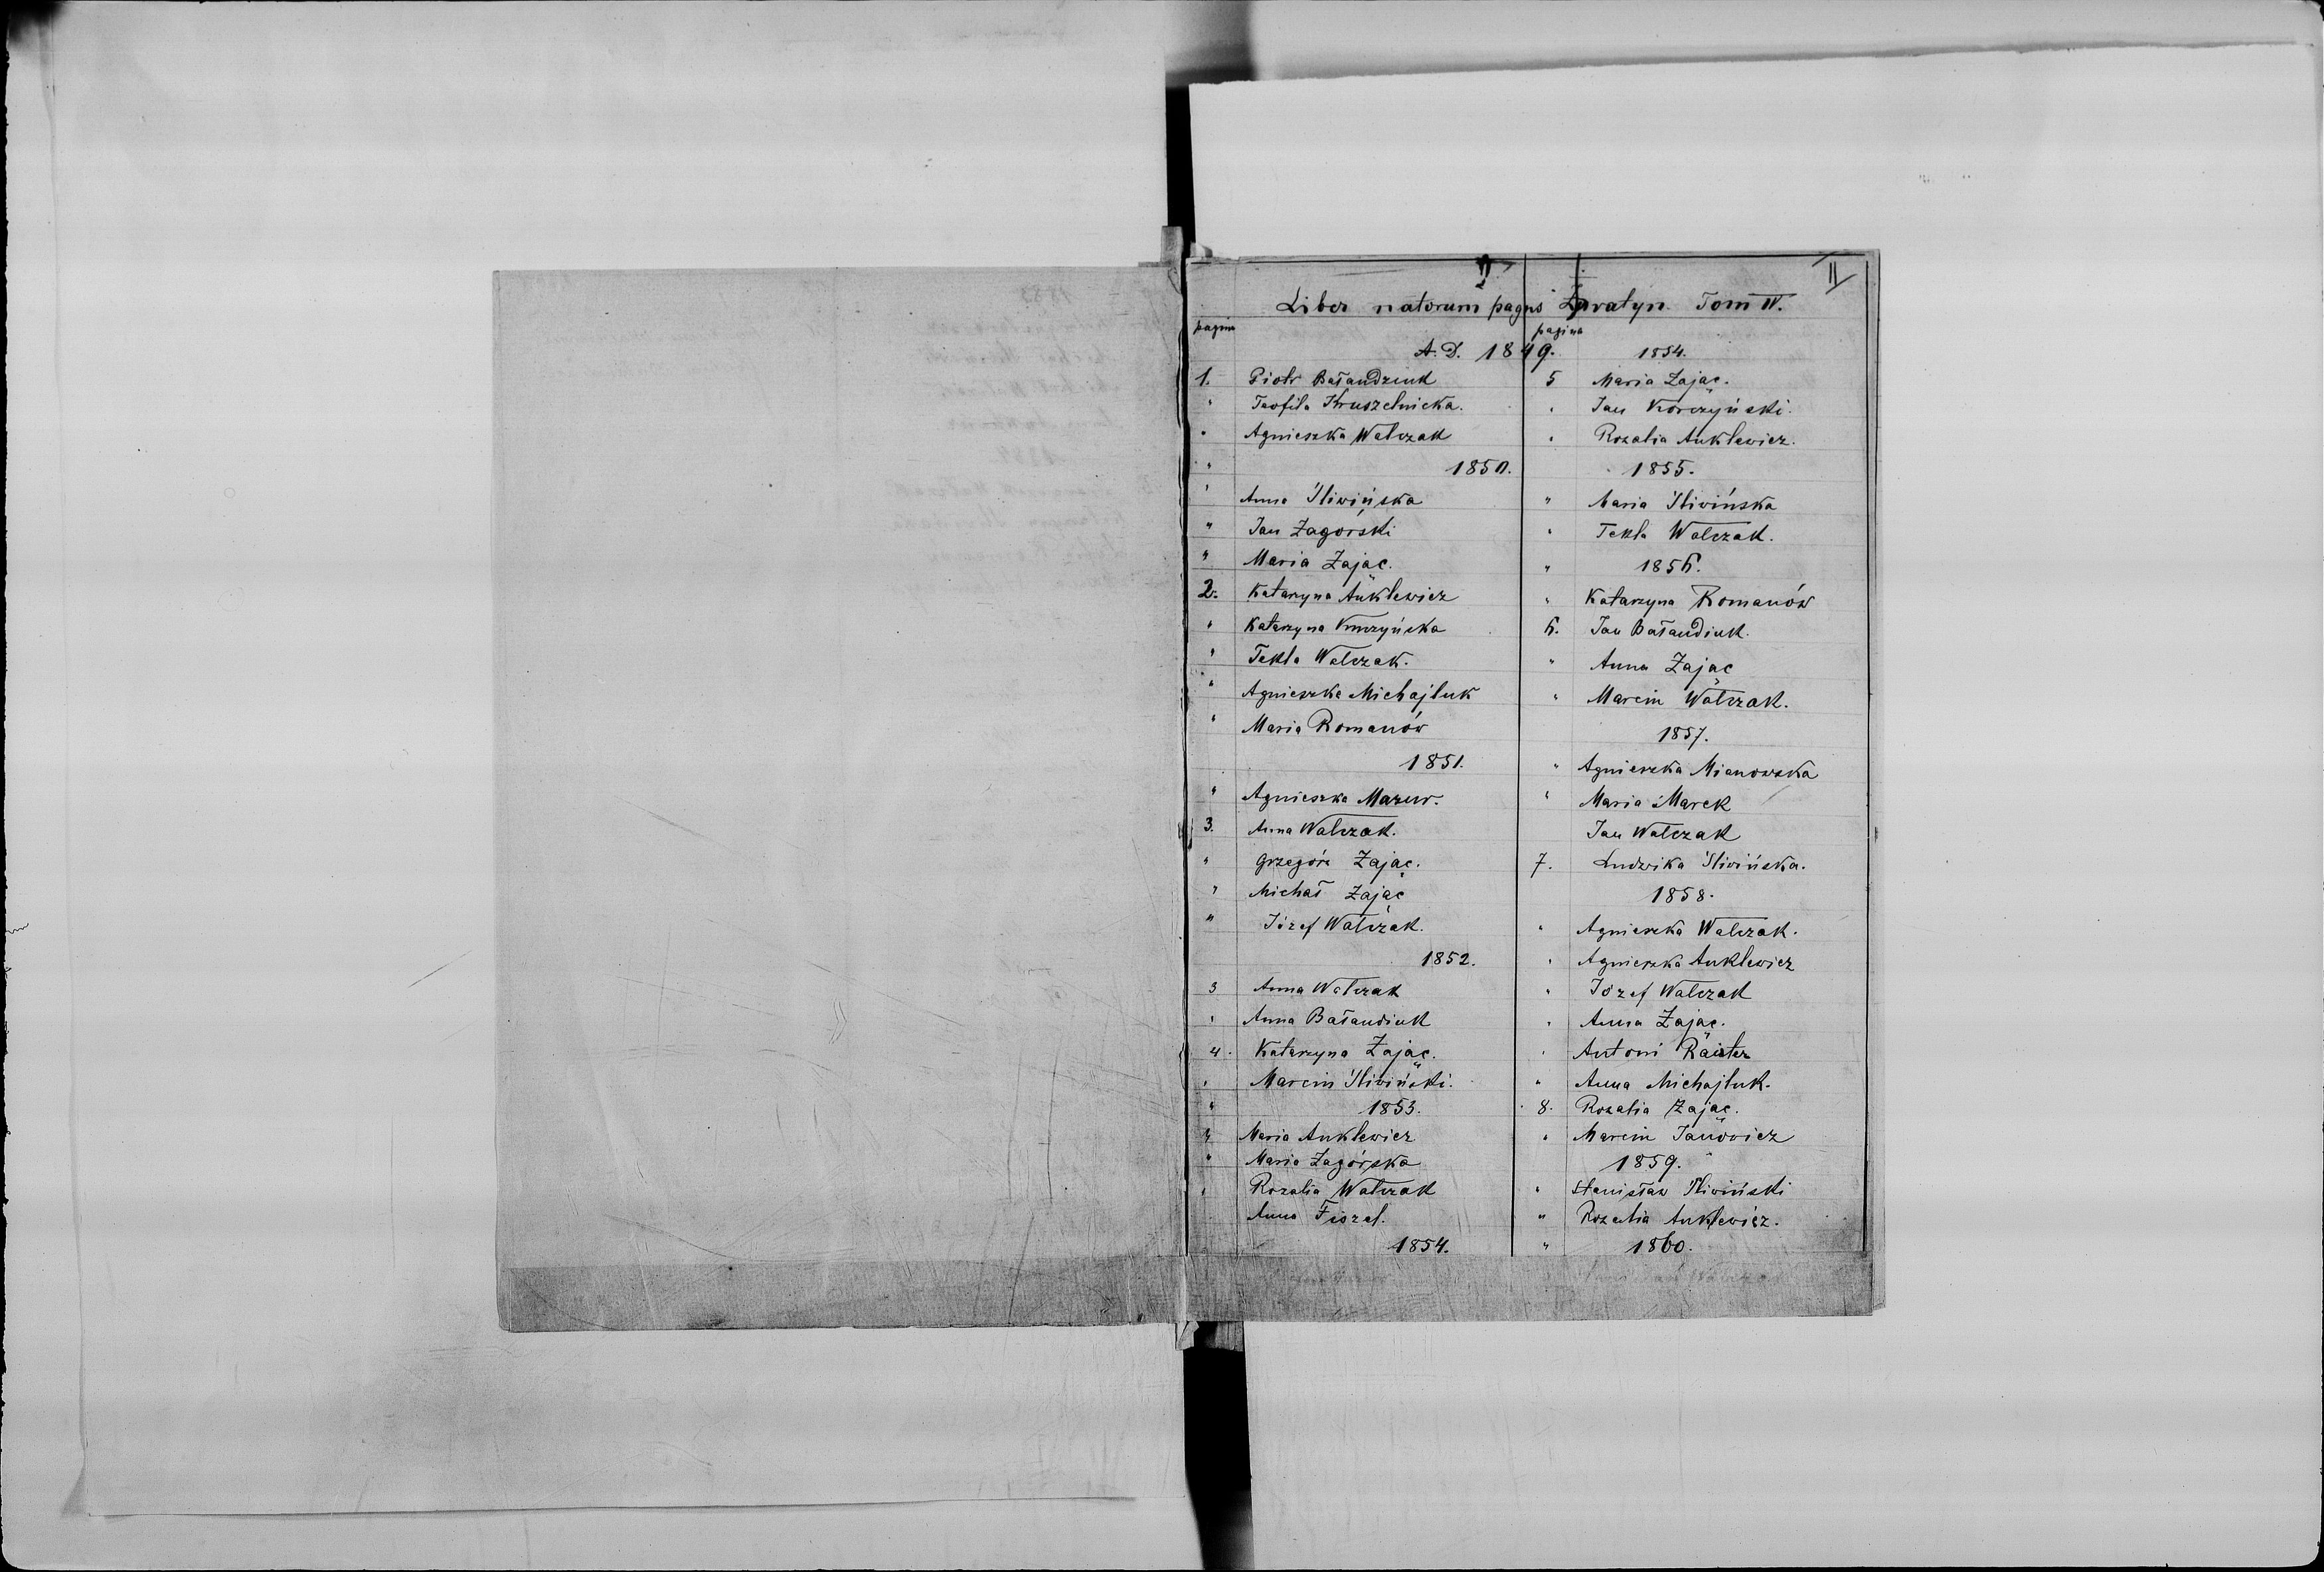 II
Liber natorum pagus Zaratyn. Tom IV.
pagina
A.D. 1849.
1. Piotr Bałandziuk
" Teofila Hruszelnicka.
" Agnieszka Walczak
" 1850.
" Anna Śliwińska
" Jan Zagórski
" Maria Zając.
2. Katarzyna Anklewicz
" Katarzyna Korczyńska
" Tekla Walczak.
" Agnieszka Michajluk
" Maria Romanów
1851.
" Agnieszka Mazur.
3. Anna Walczak.
" Grzegórz Zając.
" Michał Zając
" Józef Walczak.
1852.
3 Anna Walczak
" Anna Bałandiuk
4. Katarzyna Zając.
" Marcin Śliwiński.
" 1853.
" Maria Anklewicz
" Maria Zagórska
" Rozalia Walczak
Anna Fiszel.
1854.
pagina
1854.
5 Maria Zając.
" Jan Korczyński.
" Rozalia Anklewicz.
1855.
" Maria Śliwińska
" Tekla Walczak.
" 1856.
" Katarzyna Romanów
6. Jan Bałandiuk.
" Anna Zając
" Marcin Walczak.
1857.
" Agnieszka Mianowska
" Maria Marek
Jan Walczak
7. Ludwika Śliwińska.
1858.
" Agnieszka Walczak.
" Agnieszka Anklewicz
" Józef Walczak
" Anna Zając.
" Antoni
" Anna Michajluk.
8. Rozalia Zając.
" Marcin Janowicz
1859.
" Stanisław Śliwiński
" Rozalia Anklewicz.
" 1860.